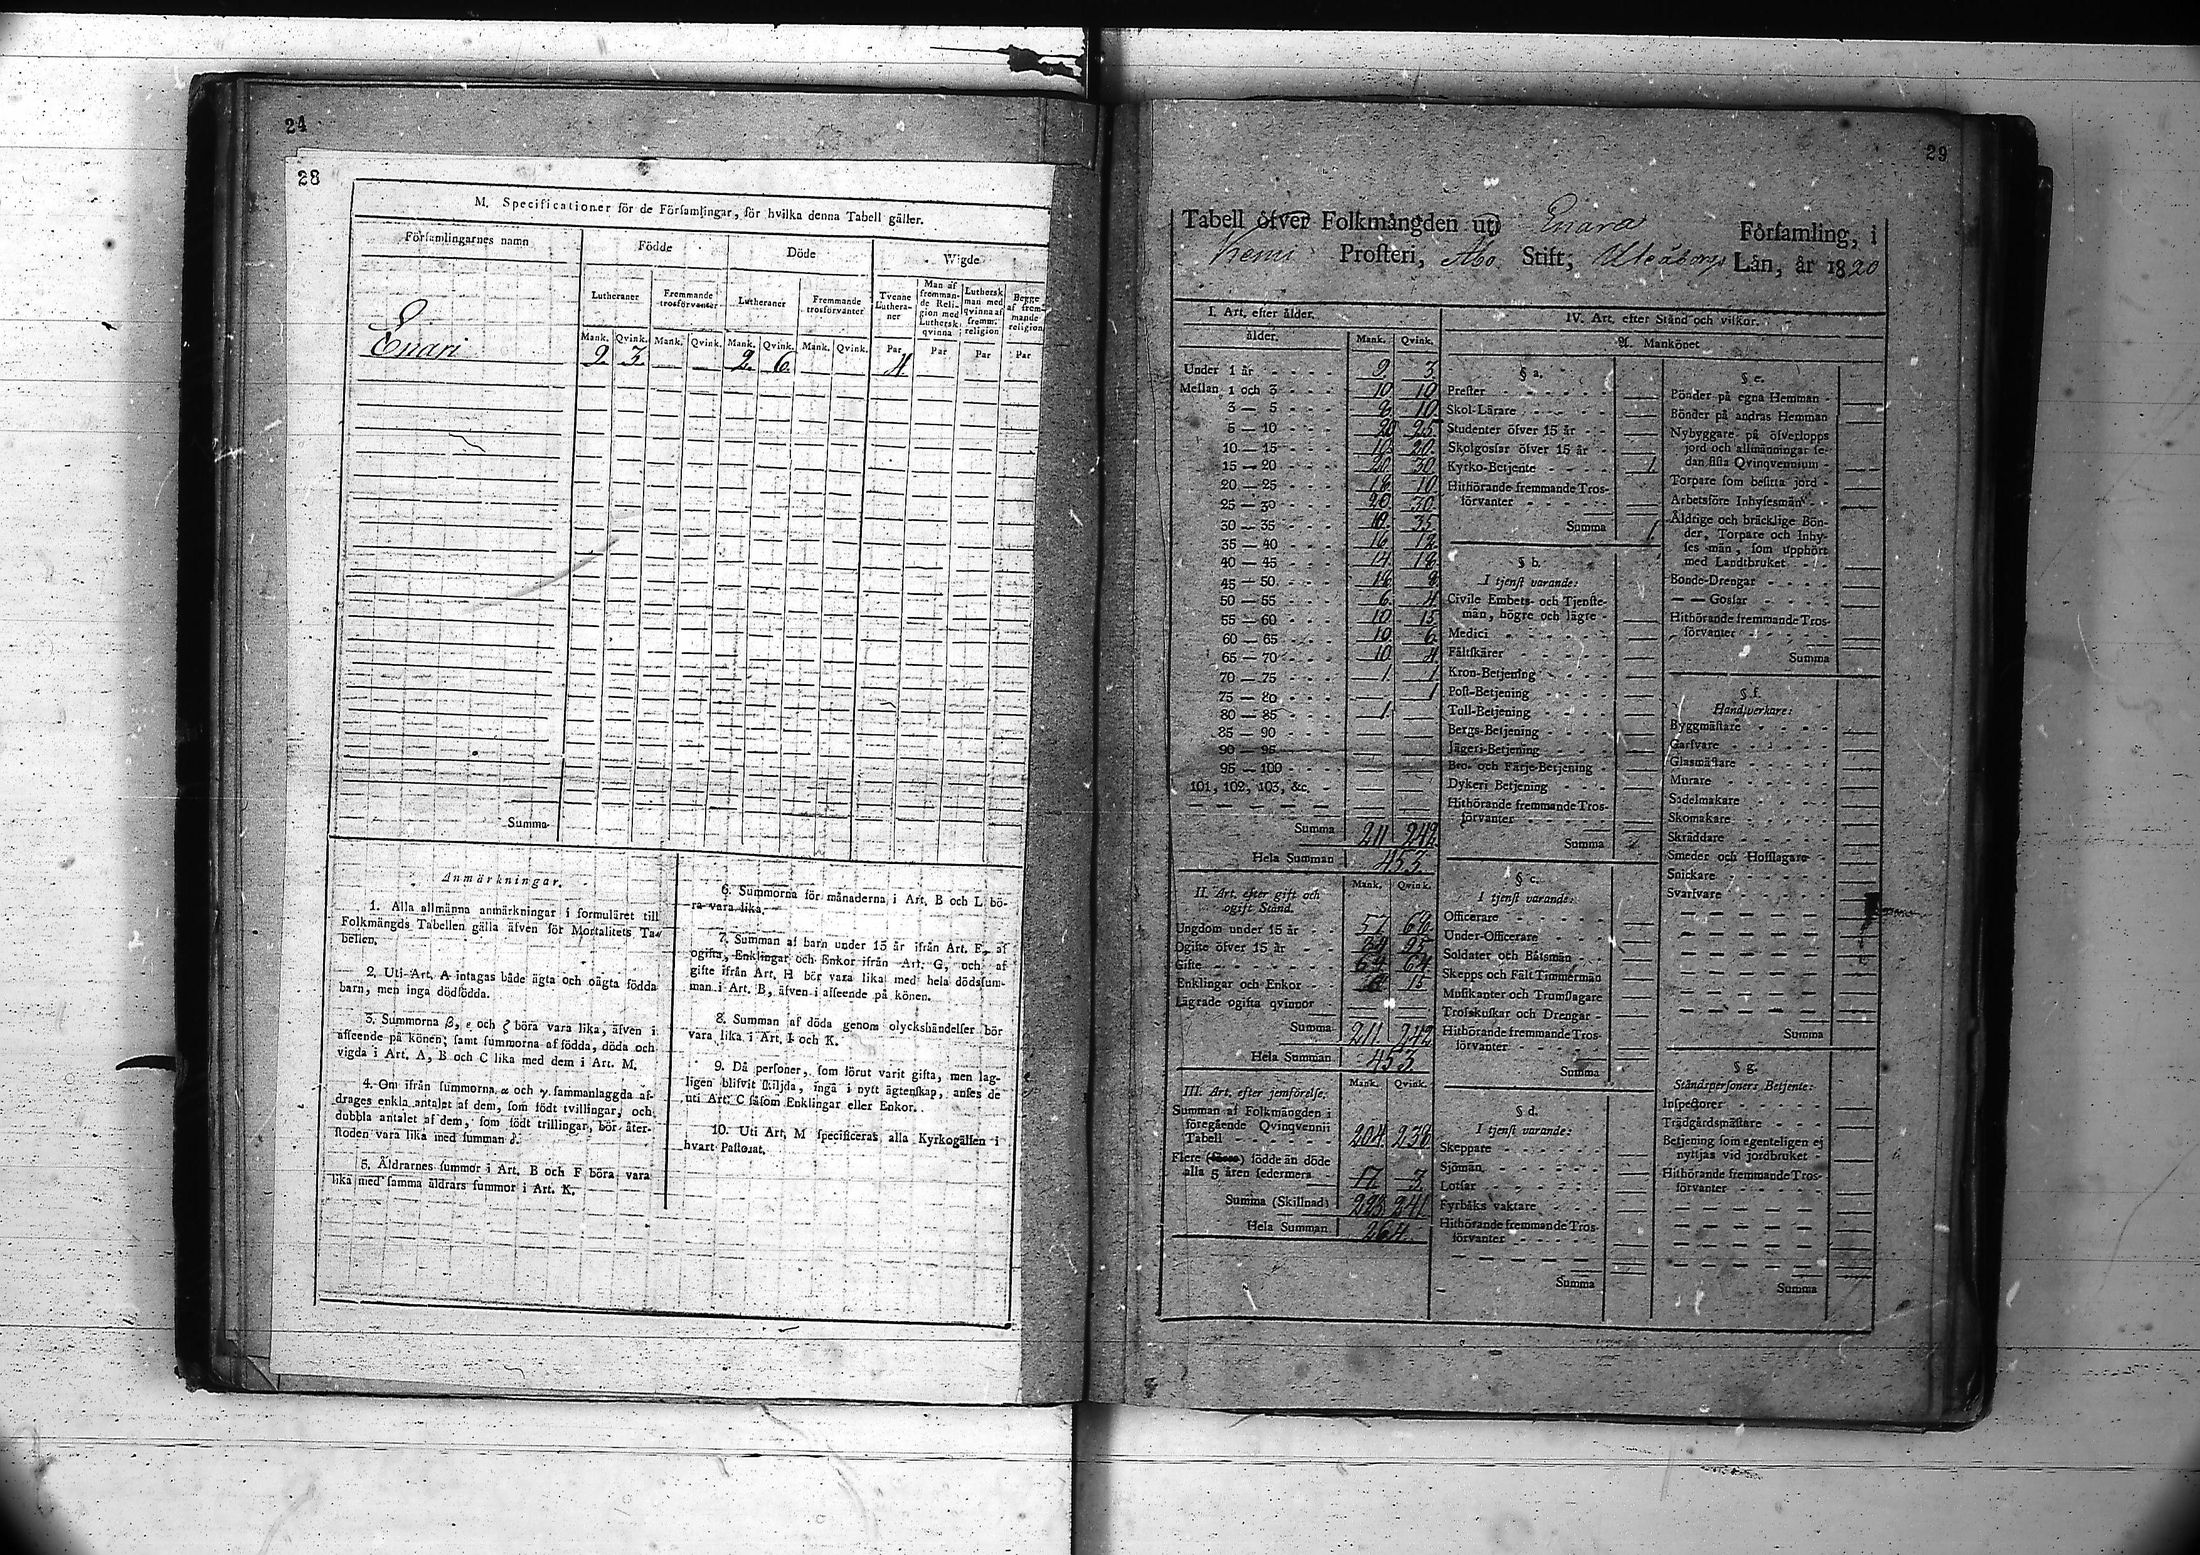 24
28
M. Specificationer för de Församlingar, för hvilka denna Tabell gäller.
Församlingarnes namn Födde Döde Wigde
Lutheraner Fremmande trosförvanter Lutheraner Fremmande trosförvanter Tvenne Lutheraner Man af fremmande Religion med Luthersk qvinna Luthersk man med qvinna af fremm. religion Begge af fremmande religion
Mank. Qvink. Mank. Qvink. Mank. Qvink. Mank. Qvink. Par Par Par Par
Enari 9. 3. — — 2. 6. — — 4.
Summa
Anmärkningar.
1. Alla allmänna anmärkningar i formuläret till
Folkmängds Tabellen gälla äfven för Mortalitets Ta-
bellen.
2. Uti Art. A intagas både ägta och oägta födda
barn, men inga dödfödda.
3. Summorna β, ε och ζ böra vara lika, äfven i
afseende på könen; samt summorna af födda, döda och
vigda i Art. A, B och C lika med dem i Art. M.
4. Om ifrån summorna α och γ sammanlaggda af-
drages enkla antalet af dem, som födt tvillingar, och
dubbla antalet af dem, som födt trillingar, bör åter-
stoden vara lika med summan δ.
5. Äldrarnes summor i Art. B och F böra vara
lika med samma äldrars summor i Art. K.
6. Summorna för månaderna i Art. B och L bö-
ra vara lika.
7. Summan af barn under 15 år ifrån Art. F, af
ogifta, Enklingar och Enkor ifrån Art. G, och af
gifte ifrån Art. H bör vara lika med hela dödssum-
man i Art. B, äfven i afseende på könen.
8. Summan af döda genom olyckshändelser bör
vara lika i Art. I och K.
9. Då personer, som förut varit gifta, men lag-
ligen blifvit skiljda, ingå i nytt ägtenskap, anses de
uti Art. C såsom Enklingar eller Enkor.
10. Uti Art. M specificeras alla Kyrkogällen i
hvart Pastorat.
29
Tabell öfver Folkmängden uti Enara Församling, i
Kemi Prosteri, Åbo Stift, Uleåborgs Län, år 1820
I. Art. efter ålder.
ålder. Mank. Qvink.
Under 1 år 9. 3.
Mellan 1 och 3 10. 10
3 — 5 8. 10.
5 — 10 20 25
10 — 15 20.
15 — 20 20. 30
20 — 25 10
25 — 30 20. 30.
30 — 35 35
35 — 40 16 12
40 — 45 14. 18
45 — 50 8.
50 — 55 6. 4
55 — 60 10. 15
60 — 65 10 6.
65 — 70 10 4.
70 — 75 1 1
75 — 80 — 1
80 — 85 1 —
85 — 90
90 — 95
95 — 100
101, 102, 103, &c.
Summa 211 242
Hela Summan 453.
II. Art. efter gift och
ogift Stånd. Mank. Qvink.
Ungdom under 15 år 57
Ogifte öfver 15 år 95
Gifte 64 64.
Enklingar och Enkor 15
Lägrade ogifta qvinnor
Summa 211. 242
Hela Summan 453.
III. Art. efter jemförelse. Mank. Qvink.
Summan af Folkmängden i
föregående Qvinqvennii
Tabell 204. 238
Flere (färre) födde än döde
alla 5 åren sedermera 17. 3.
Summa (Skillnad) 241
Hela Summan 264.
IV. Art. efter Stånd och vilkor.
A. Mankönet
§ a.
Prester
Skol-Lärare
Studenter öfver 15 år
Skolgossar öfver 15 år
Kyrko-Betjente 1.
Hithörande fremmande Tros-
förvanter
Summa 1.
§ b.
I tjenst varande:
Civile Embets- och Tjenste-
män, högre och lägre
Medici
Fältskärer
Kron-Betjening
Post-Betjening
Tull-Betjening
Bergs-Betjening
Jägeri-Betjening
Bro- och Färje-Betjening
Dykeri Betjening
Hithörande fremmande Tros-
förvanter
Summa
§ c.
I tjenst varande:
Officerare
Under-Officerare
Soldater och Båtsmän
Skepps och Fält Timmermän
Musikanter och Trumslagare
Trosskuskar och Drengar
Hithörande fremmande Tros-
förvanter
Summa
§ d.
I tjenst varande:
Skeppare
Sjömän
Lotsar
Fyrbåks vaktare
Hithörande fremmande Tros-
förvanter
Summa
§ e.
Bönder på egna Hemman
Bönder på andras Hemman
Nybyggare på öfverlopps
jord och allmänningar se-
dan sista Qvinqvennium
Torpare som besitta jord
Arbetsföre Inhysesmän
Äldrige och bräcklige Bön-
der, Torpare och Inhy-
ses män, som upphört
med Landtbruket
Bonde-Drengar
— — Gossar
Hithörande fremmande Tros-
förvanter
Summa
§ f.
Handtverkare:
Byggmästare
Garfvare
Glasmästare
Murare
Sadelmakare
Skomakare
Skräddare
Smeder och Hofslagare
Snickare
Svarfvare
Summa
§ g.
Ståndspersoners Betjente:
Inspectorer
Trädgårdsmästare
Betjening som egenteligen ej
nyttjas vid jordbruket
Hithörande fremmande Tros-
förvanter
Summa